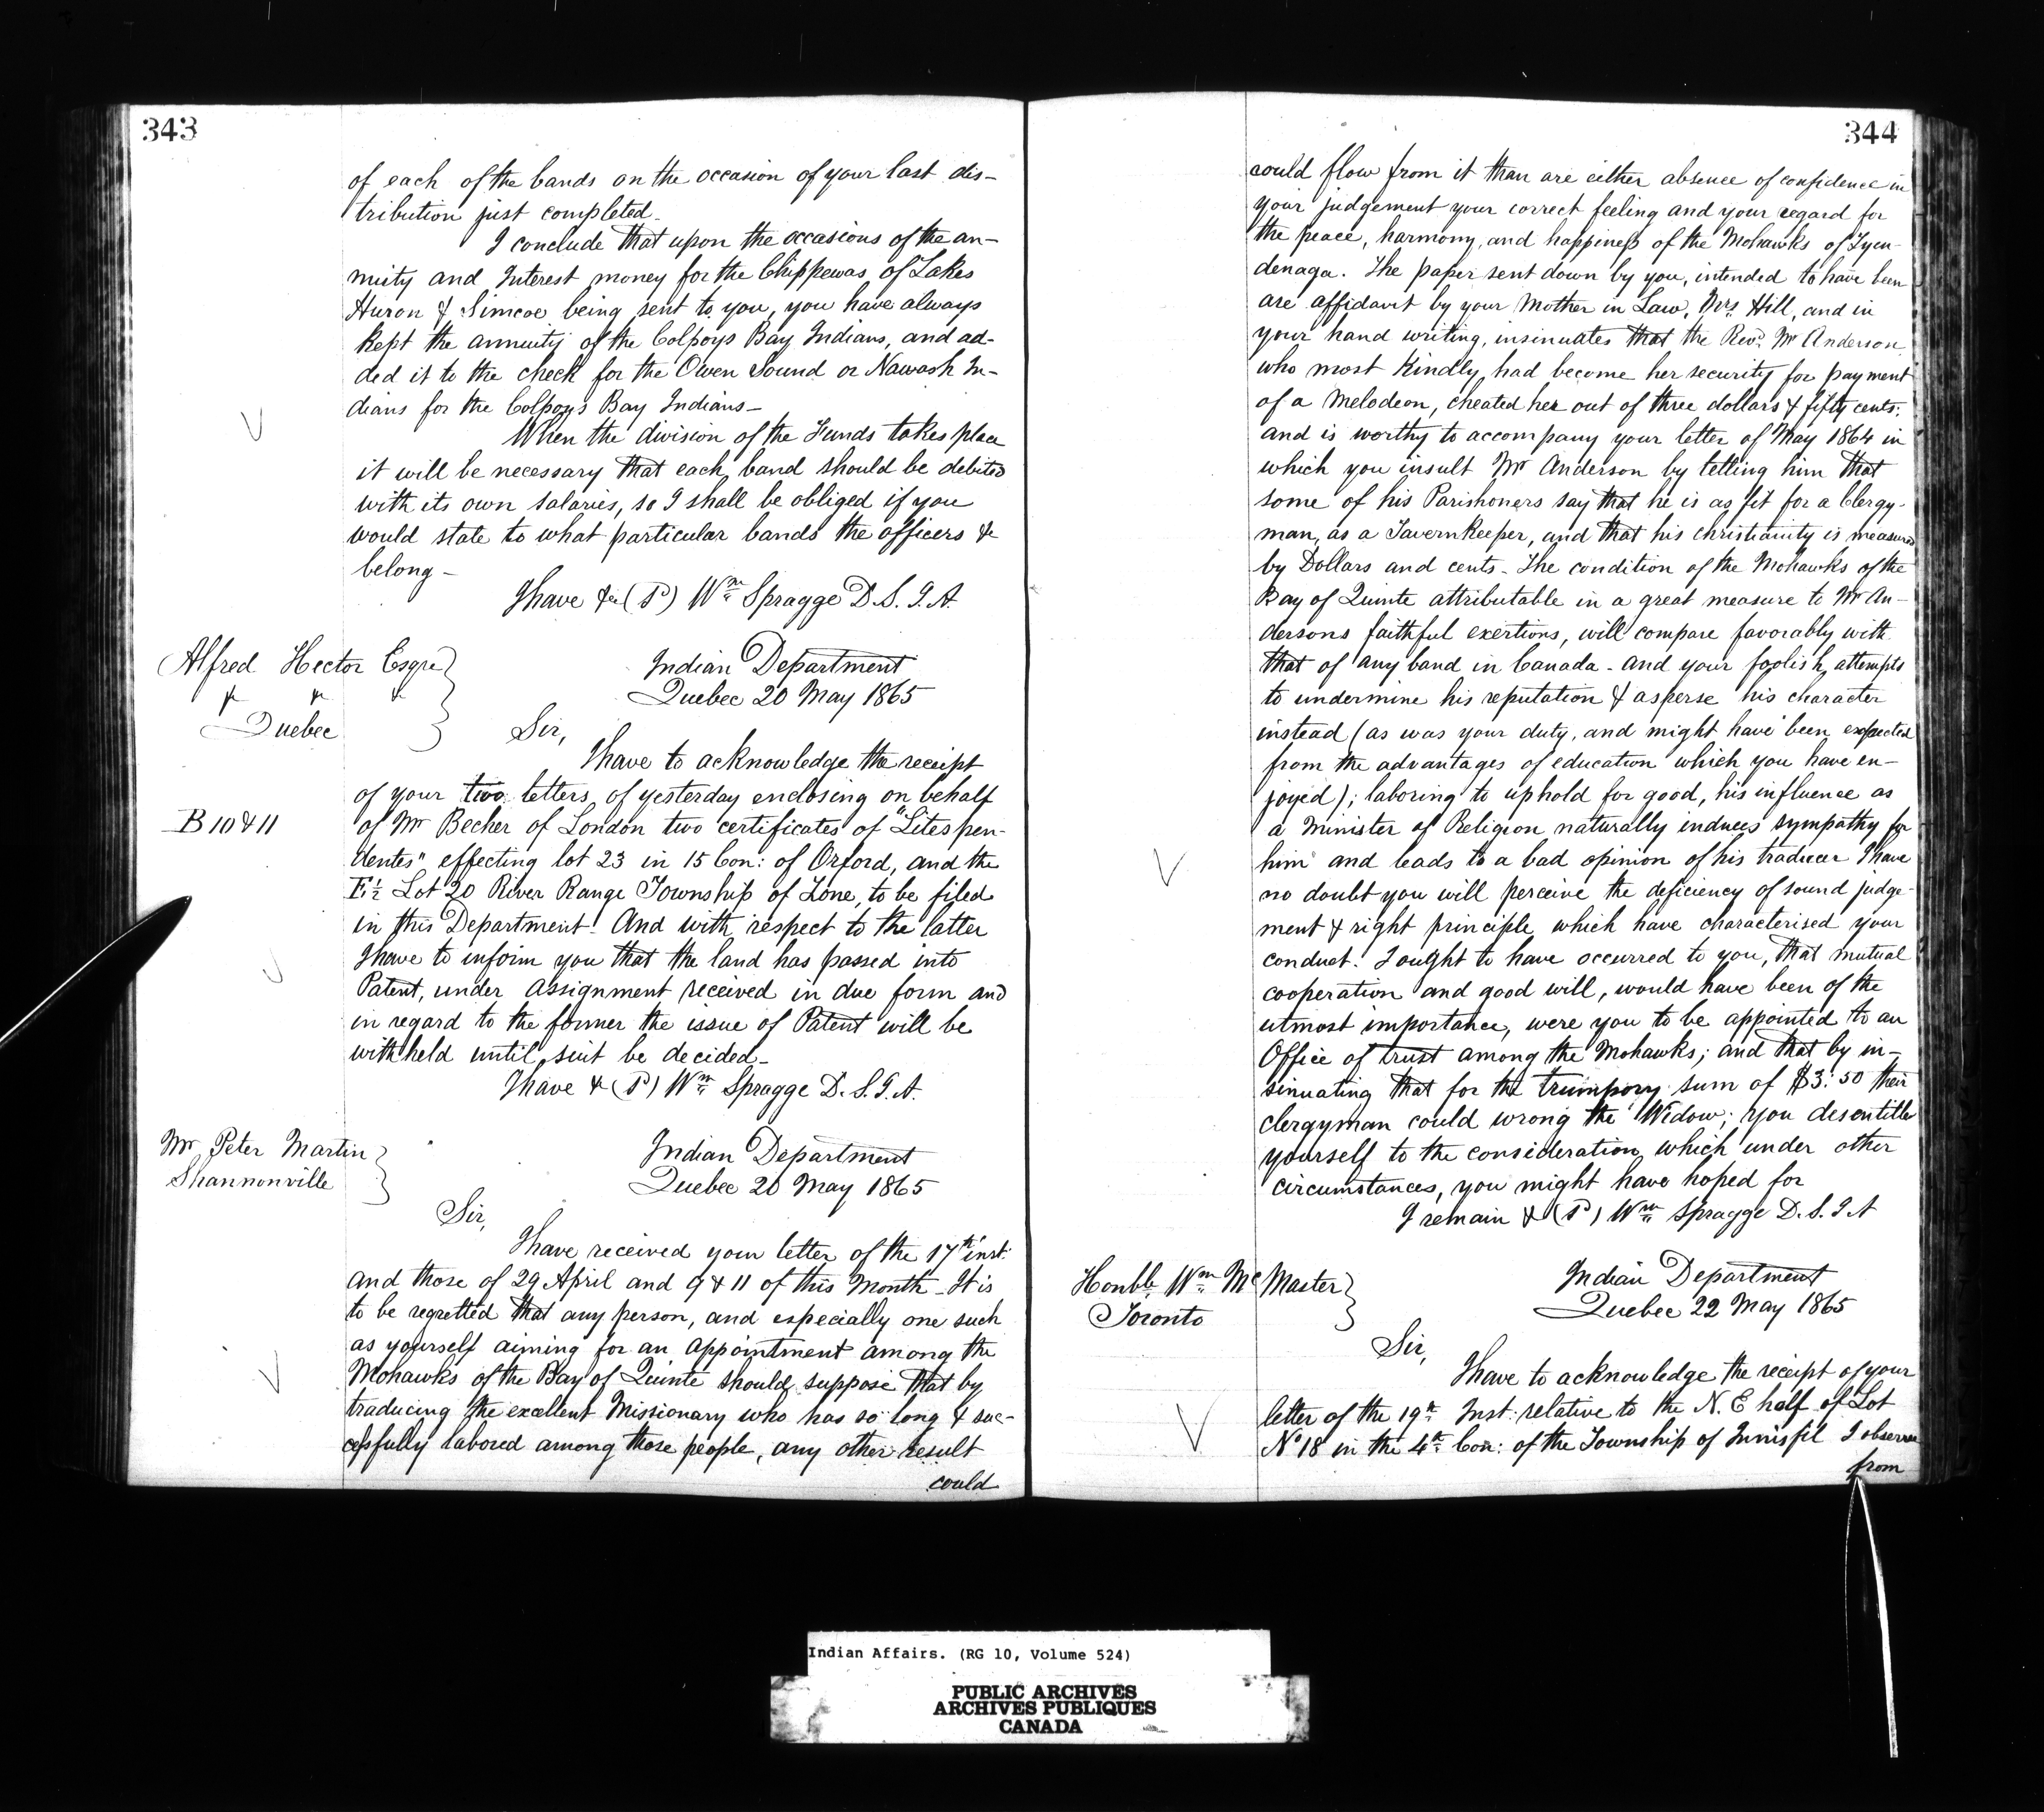 343
of each of the bands on the occasion of your last dis-
tribution just completed-
I conclude that upon the occasions of the an-
nuity and Interest money for the Chippewas of Lakes
Huron & Simcoe being sent to you, you have always
kept the annuity of the Colpoys Bay Indians, and ad-
ded it to the check for the Owen Sound or Nawash In-
dians for the Colpoys Bay Indians-
When the division of the Funds takes place
it will be necessary that each band should be debited
with its own salaries, so I shall be obliged if you
would state to what particular bands the officers &
belong-
I have &c (Sd) Wm Spragge D.S.I.A.
Alfred Hector Esqre
& & &
Quebec
Indian Department
Quebec 20 May 1865
Sir,
I have to acknowledge the receipt
of your two letters of yesterday enclosing on behalf
B 10 & 11
of Mr Becher of London two certificates of "Lites pen-
dentes" effecting lot 23 in 15 Con: of Orford, and the
E½ Lot 20 River Range Township of Zone, to be filed
in this Department. And with respect to the latter
I have to inform you that the land has passed into
Patent, under assignment received in due form and
in regard to the former the issue of Patent will be
withheld until suit be decided-
I have & (Sd) Wm Spragge D.S.I.A.
Mr Peter Martin
Shannonville
Indian Department
Quebec 20 May 1865
Sir,
I have received your letter of the 17th inst:
and those of 29 April and 9 & 11 of this Month- It is
to be regretted that any person, and especially one such
as yourself aiming for an appointment among the
Mohawks of the Bay of Quinte should suppose that by
traducing the excellent Missionary who has so long & suc-
cessfully labored among those people, any other result
could
344
could flow from it than are either absence of confidence in
your judgement your correct feeling and your regard for
the peace, harmony, and happiness of the Mohawks of Tyen-
denaga. The paper sent down by you, intended to have been
are affidavit by your Mother in Law, Mrs Hill, and in
your hand writing, insinuates that the Revd. Mr Anderson
who most kindly had become her security for payment
of a Melodeon, cheated her out of three dollars & fifty cents;
and is worthy to accompany your letter of May 1864 in
which you insult Mr Anderson by telling him that
some of his Parishoners say that he is as fit for a Clergy-
man, as a Tavernkeeper, and that his christianity is measured
by Dollars and cents- The condition of the Mohawks of the
Bay of Quinte attributable in a great measure to Mr An-
dersons faithful exertions, will compare favorably with
that of any band in Canada- and your foolish attempts
to undermine his reputation & asperse his character
instead (as was your duty, and might have been expected
from the advantages of education which you have en-
joyed); laboring to uphold for good, his influence as
a Minister of Religion naturally induces sympathy for
him and leads to a bad opinion of his traducer I have
no doubt you will perceive the deficiency of sound judge-
ment & right principle which have characterised your
conduct. I ought to have occurred to you, that mutual
cooperation and good will, would have been of the
utmost importance, were you to be appointed to an
Office of trust among the Mohawks; and that by in-
sinuating that for the trumpory sum of $3:50 their
clergyman could wrong the Widow; you desentitle
yourself to the consideration which under other
circumstances, you might have hoped for
I remain & (Sd) Wm Spragge D.S.I.A
Honble Wm McMaster
Toronto
Indian Department
Quebec 22 May 1865
Sir,
I have to acknowledge the receipt of your
letter of the 19th Inst: relative to the N.E half of Lot
No 18 in the 4th Con: of the Township of Innisfil I observe
from
Indian Affairs. (RG 10, Volume 524)
PUBLIC ARCHIVES
ARCHIVES PUBLIQUES
CANADA